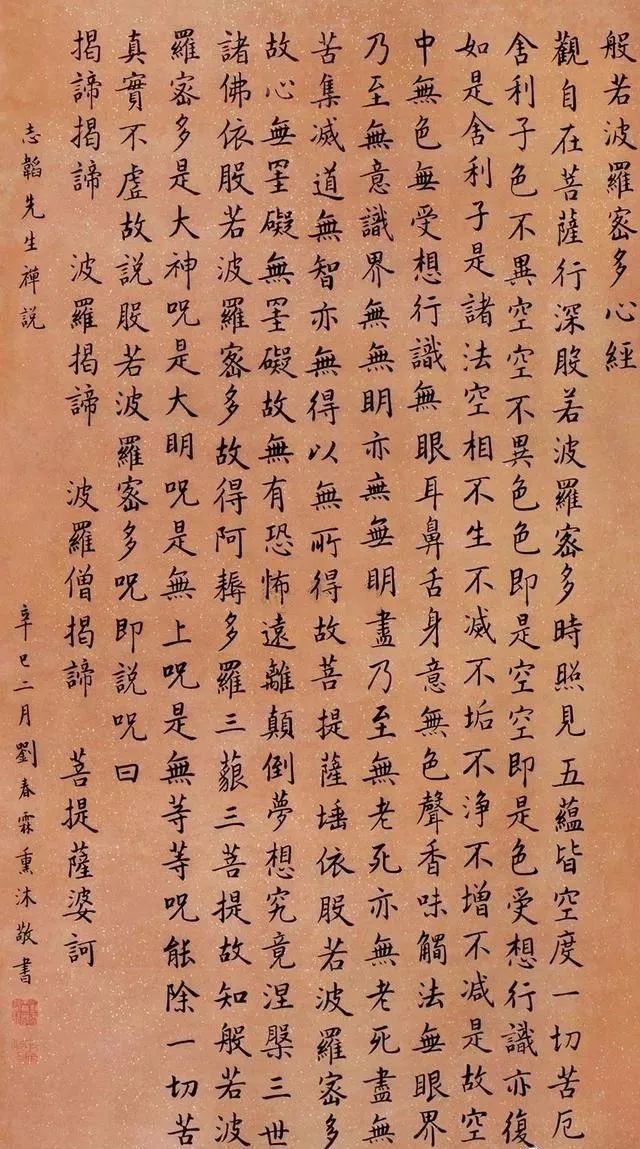 般若波羅密多心經
觀自在菩薩行深般若波羅密多時照見五蘊皆空度一切苦厄
舍利子色不異空空不異色色即是空空即是色受想行識亦復
如是舍利子是諸法空相不生不滅不垢不浄不增不減是故空
中無色無受想行識無眼耳鼻舌身意無色聲香味觸法無眼界
乃至無意識界無無眀亦無無眀盡乃至無老死亦無老死盡無
苦集滅道無智亦無得以無所得故菩提薩埵依般若波羅密多
故心無罣礙無罣礙故無有恐怖遠離顛倒夢想究竟涅槃三世
諸佛依般若波羅密多故得阿耨多羅三藐三菩提故知般若波
羅密多是大神咒是大眀咒是無上咒是無等等咒能除一切苦
真實不虛故説般若波羅密多咒即説咒曰
揭諦揭諦 波羅揭諦 波羅僧揭諦 菩提薩婆訶
志韜先生禪説 辛巳二月劉春霖熏沐敬書